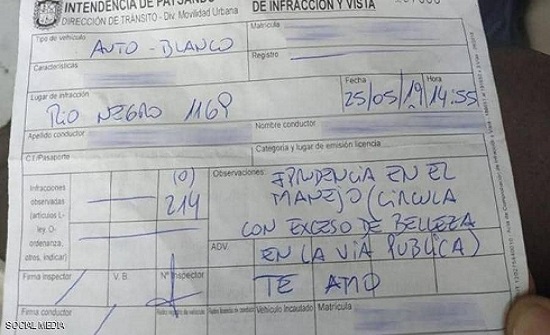 INTENDENCIA DE PAYSANDÚ
DE INFRACCION Y VISTA
DIRECCIÓN DE TRÁNSITO - Div. Movilidad Urbana
Matrícula
Tipo de vehículo
AUTO - BLANCO
Registro
Características
Lugar de infracción
RIO NEGRO 1169
Fecha
25/05/19
Hora
14:55
Apellido conductor
Nombre conductor
C.I/Pasaporte
Categoría y lugar de emisión licencia
Infracciones
observadas
(artículos L-
ley, O-
ordenanza,
otros, indicar)
(0)
214
Observaciones
IPRUDENCIA EN EL
MANEJO (CIRCULA
CON EXCESO DE BELLEZA
ADV.
EN LA VIA PUBLICA)
TE AMO
Firma inspector
V. B.
N° Inspector
Firma conductor
Vehículo Incautado
Matrícula
SOCIAL MEDIA